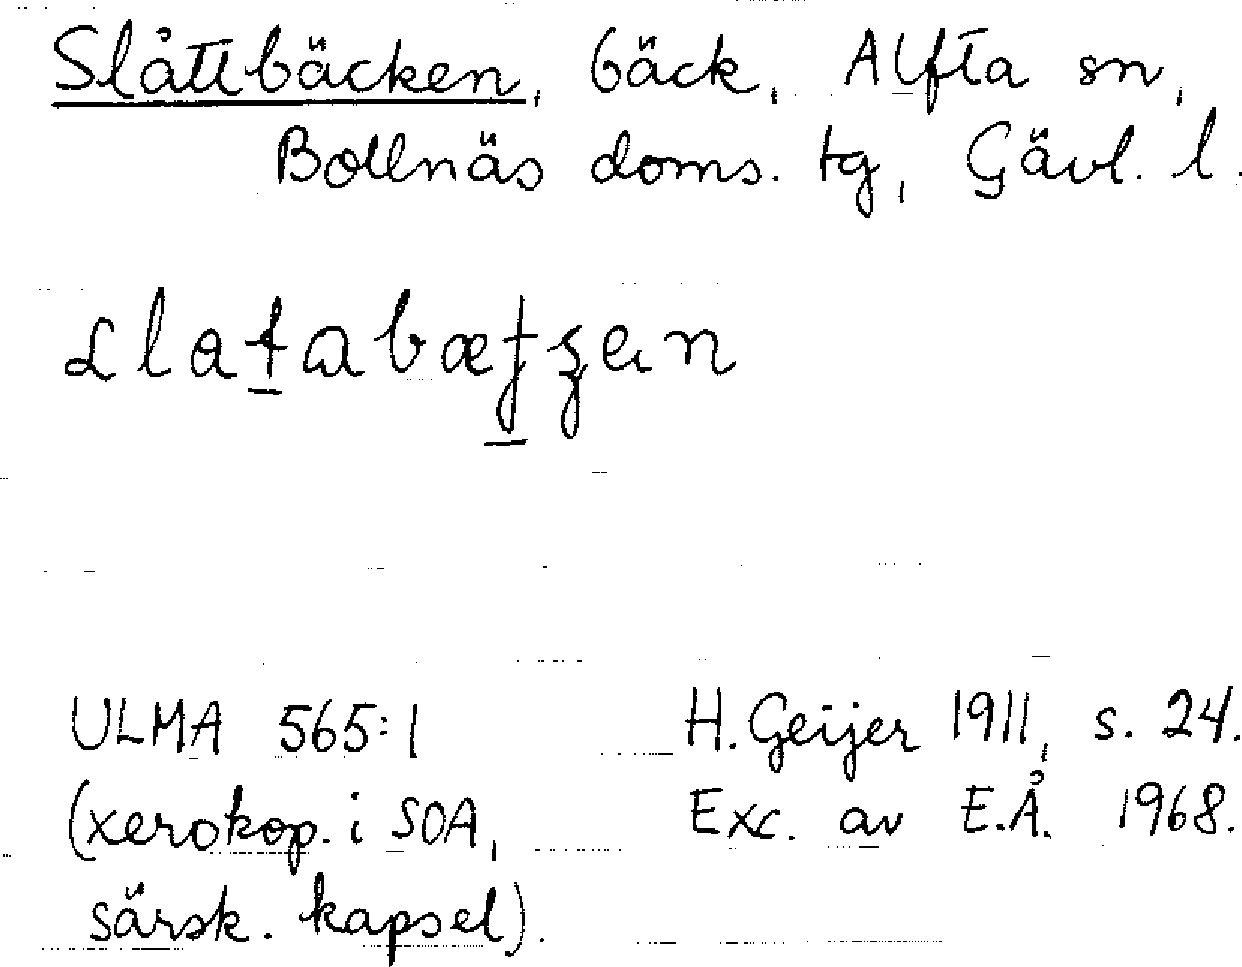 Slåttbäcken, bäck, Alfta sn,
Bollnäs doms. tg, Gävl. l.
ULMA 565:1
H. Geijer 1911, s. 24.
(xerokop. i SOA,
Exc. av E.Å. 1968.
särsk. kapsel).